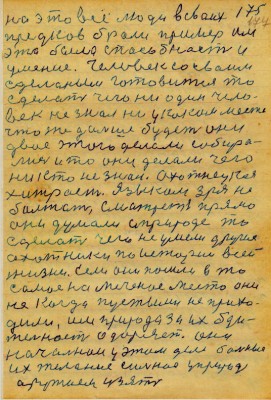 на это всё люди в своих 175
предков брали пример им
это была способность и
умение. Человек со своим
сделаным готовится то
сделать чего ни один чело-
век не знал ни у каком месте
что же дальше будет они
двое этого делали собира-
лись и то они делали чего
никто не знал. Охотнецкая
хитрает. Языком зря не
болтают, смотрят прямо
они думали с природе то
сделать чего не умели другие
охотники по истории всей
жизни. Если они пошли в то
самое намеченое место они
не когда пустыми не прихо-
дили, им природа за их бди-
тельность одаряет. они
начальном у этом деле большие
их желание сильная у природ
оружием взять